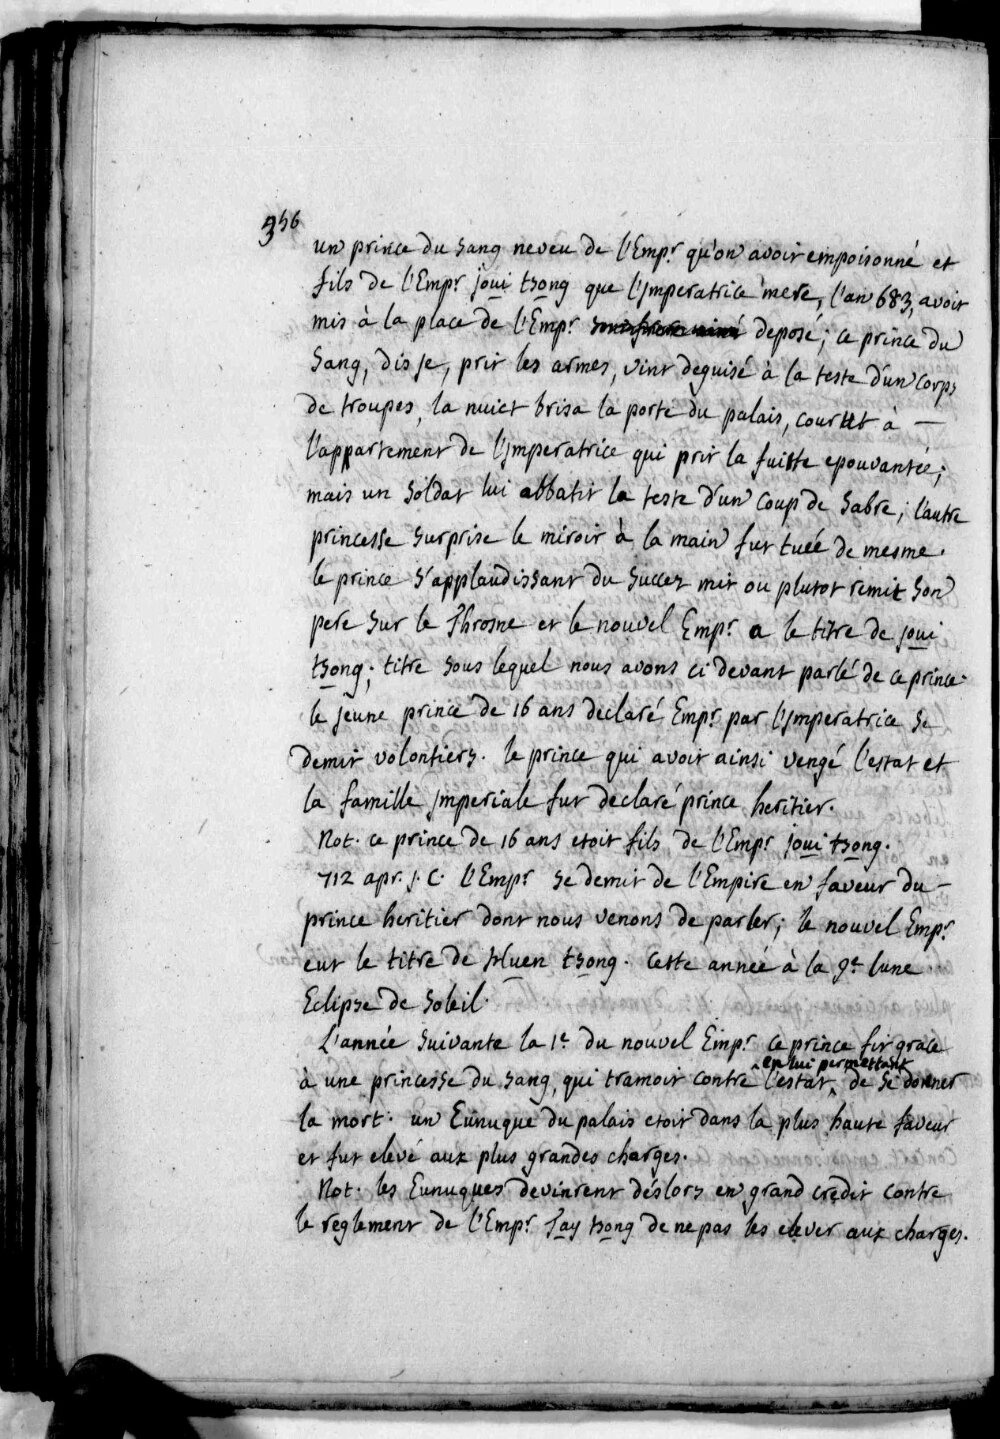 356
un prince du sang neveu de l'Empr. qu'on avoit empoisonné et
fils de l'Empr. joui tsong que l'jmperatrice mere, l'an 683, avoit
mis à la place de l'Empr. deposé; ce prince du
sang, dis je, prit les armes, vint deguisé à la teste d'un corps
de troupes, la nuict brisa la porte du palais, courut à —
l'appartement de l'jmperatrice qui prit la fuitte epouvantée;
mais un soldat lui abbatit la teste d'un coup de sabre; l'autre
princesse surprise le miroir à la main fut tuée de mesme.
le prince s'applaudissant du succez mit ou plutot remit son
pere sur le Throsne et le nouvel Empr. a le titre de joui
tsong; titre sous lequel nous avons ci devant parlé de ce prince.
le jeune prince de 16 ans declaré Empr. par l'jmperatrice se
demit volontiers. le prince qui avoit ainsi vengé l'estat et
la famille jmperiale fut declaré prince heritier.
Not. ce prince de 16 ans etoit fils de l'Empr. joui tsong.
712 apr. j. C. l'Empr. se demit de l'Empire en faveur du —
prince heritier dont nous venons de parler; le nouvel Empr.
eut le titre de Hiuen tsong. cette année à la 9e. lune
Eclipse de soleil.
L'année suivante la 1e. du nouvel Empr. ce prince fit grace
en lui permettant
à une princesse du sang, qui tramoit contre l'estat, de se donner
la mort. un Eunuque du palais etoit dans la plus haute faveur
et fut elevé aux plus grandes charges.
Not. les Eunuques devinrent déslors en grand credit contre
le reglement de l'Empr. Tay tsong de ne pas les elever aux charges.